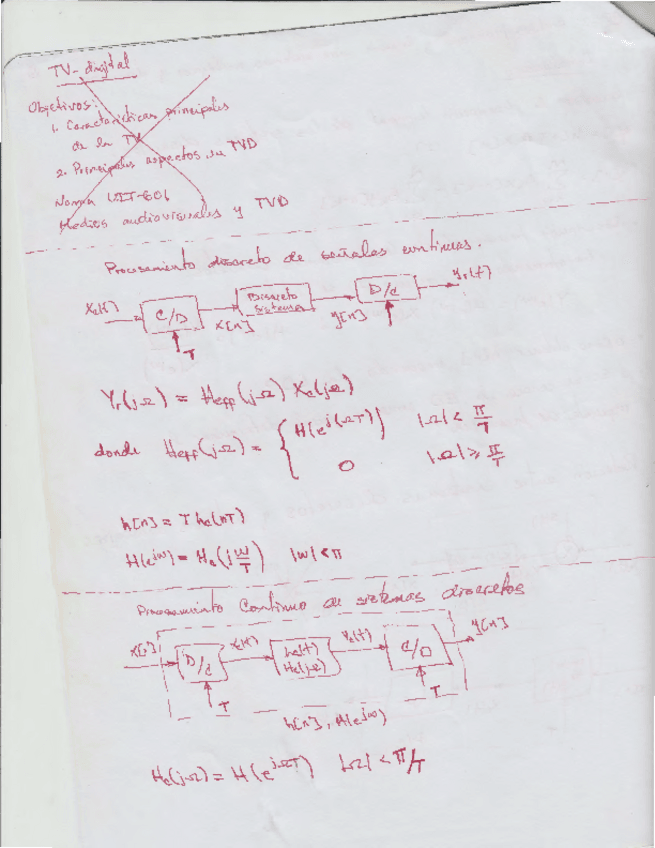 TV-digital
Objetivos:
1. Características principales
de la TV
2. Principales aspectos su TVD
Norma UIT-601
Medios audiovisuales y TVD
Procesamiento discreto de señales continuas.
Xc(t) C/D x[n] Discreto sistema y[n] D/C yr(t)
T
Yr(jΩ) = Heff(jΩ) Xc(jΩ)
donde Heff(jΩ) = { H(e^j(ΩT)) |Ω| < π/T
0 |Ω| ≥ π/T
h[n] = T hc(nT)
H(e^jω) = Hc(j ω/T) |ω| < π
Procesamiento Continuo de sistemas discretos
x[n] D/C xc(t) hc(t) Hc(jΩ) Yc(t) C/D y[n]
T T
h[n], H(e^jω)
Hc(jΩ) = H(e^jΩT) |Ω| < π/T